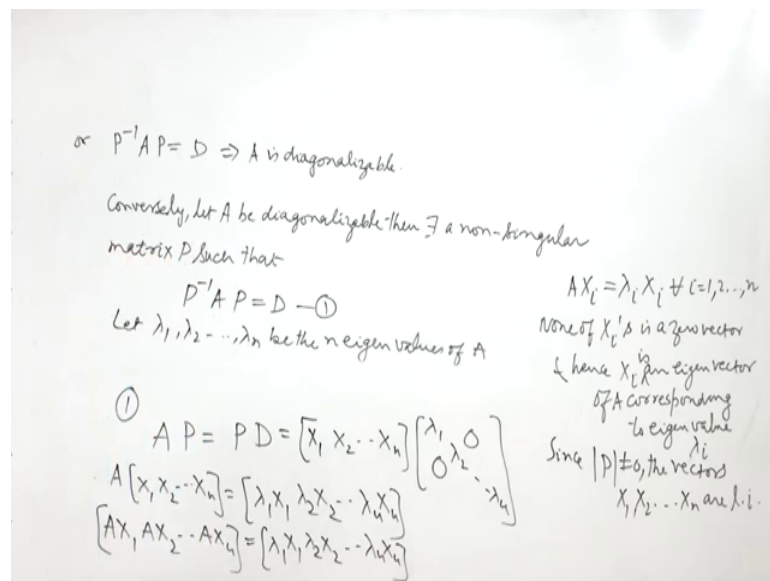 or P⁻¹AP = D ⇒ A is diagonalizable.
Conversely, let A be diagonalizable then ∃ a non-singular
matrix P such that
P⁻¹AP = D —①
Let λ₁, λ₂ - - -, λₙ be the n eigen values of A
①
AP = PD = [X₁ X₂ - - Xₙ] [λ₁ λ₂ ⋱ λₙ, 0 0]
A[X₁ X₂ - - Xₙ] = [λ₁X₁ λ₂X₂ - - λₙXₙ]
[AX₁ AX₂ - - AXₙ] = [λ₁X₁ λ₂X₂ - - λₙXₙ]
AXᵢ = λᵢXᵢ ∀ i=1,2..,n
None of Xᵢ's is a zero vector
& hence Xᵢ is an eigen vector
of A corresponding
to eigen value
λᵢ
Since |P| ≠ 0, the vectors
X₁ X₂ ... Xₙ are l.i.